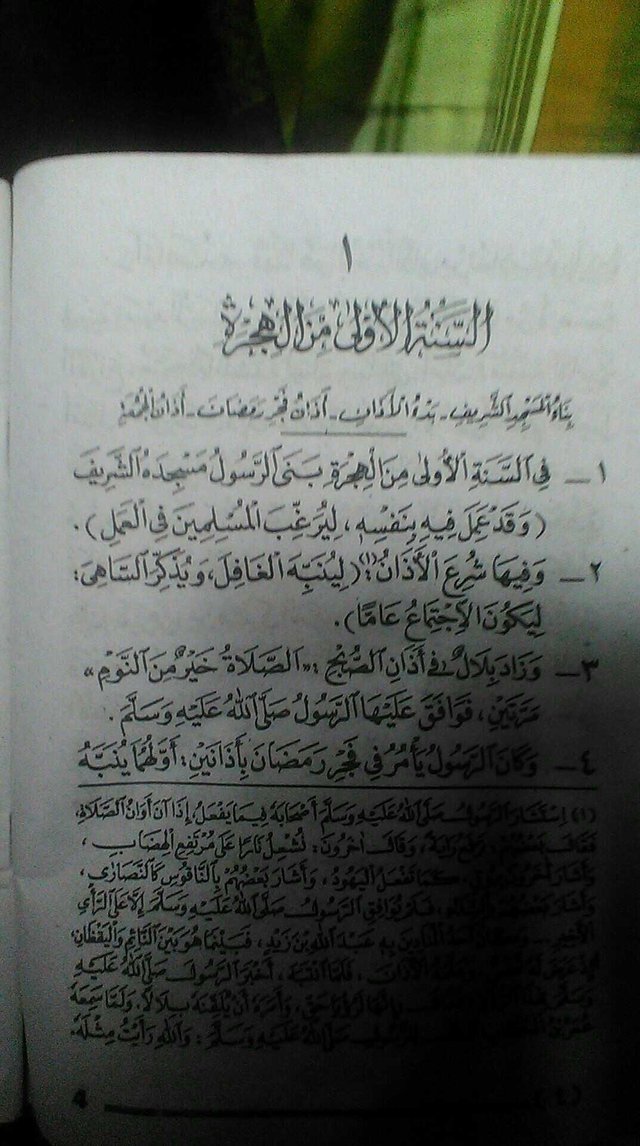 ١
السَّنَةُ الأُولىٰ مِنَ الهِجْرَةِ
بِنَاءُ المَسْجِدِ الشَّرِيفِ - بَدْءُ الأَذَانِ - أَذَانُ فَجْرِ رَمَضَانَ - أَذَانُ الجُمُعَةِ
١ـ فِي السَّنَةِ الأُولىٰ مِنَ الهِجْرَةِ بَنَى الرَّسُولُ مَسْجِدَهُ الشَّرِيفَ
(وَقَدْ عَمِلَ فِيهِ بِنَفْسِهِ، لِيُرَغِّبَ المُسْلِمِينَ فِي العَمَلِ).
٢ـ وَفِيهَا شُرِعَ الأَذَانُ (١): (لِيُنَبِّهَ الغَافِلَ، وَيُذَكِّرَ السَّاهِيَ:
لِيَكُونَ الاِجْتِمَاعُ عَامًّا).
٣ـ وَزَادَ بِلَالٌ فِي أَذَانِ الصُّبْحِ: «الصَّلَاةُ خَيْرٌ مِنَ النَّوْمِ»
مَرَّتَيْنِ، فَوَافَقَ عَلَيْهَا الرَّسُولُ صَلَّى اللهُ عَلَيْهِ وَسَلَّمَ.
٤ـ وَكَانَ الرَّسُولُ يَأْمُرُ فِي فَجْرِ رَمَضَانَ بِأَذَانَيْنِ: أَوَّلُهُمَا يُنَبِّهُ
(١) اِسْتَشَارَ الرَّسُولُ صَلَّى اللهُ عَلَيْهِ وَسَلَّمَ أَصْحَابَهُ فِيمَا يَفْعَلُ، إِذَا آنَ أَوَانُ الصَّلَاةِ،
فَقَالَ بَعْضُهُمْ: نَرْفَعُ رَايَةً، وَقَالَ آخَرُونَ: نُشْعِلُ نَارًا عَلَى مُرْتَفِعِ الهِضَابِ،
وَأَشَارَ آخَرُونَ بِبُوقٍ، كَمَا تَفْعَلُ اليَهُودُ، وَأَشَارَ بَعْضُهُمْ بِالنَّاقُوسِ كَالنَّصَارَى،
وَأَشَارَ بَعْضُهُمْ فَلَمْ يُوَافِقِ الرَّسُولُ صَلَّى اللهُ عَلَيْهِ وَسَلَّمَ إِلَّا عَلَى الرَّأْيِ
الأَخِيرِ عَبْدَ اللهِ بْنَ زَيْدٍ، فَبَيْنَمَا هُوَ بَيْنَ النَّائِمِ وَاليَقْظَانِ
الأَذَانَ، فَلَمَّا انْتَبَهَ، أَخْبَرَ الرَّسُولَ صَلَّى اللهُ عَلَيْهِ
وَسَلَّمَ إِنَّهَا لَرُؤْيَا حَقٍّ، وَأَمَرَهُ أَنْ يُلَقِّنَهُ بِلَالًا، وَلَمَّا سَمِعَهُ
عُمَرُ صَلَّى اللهُ عَلَيْهِ وَسَلَّمَ: وَاللهِ رَأَيْتُ مِثْلَهُ.
4
(٤)